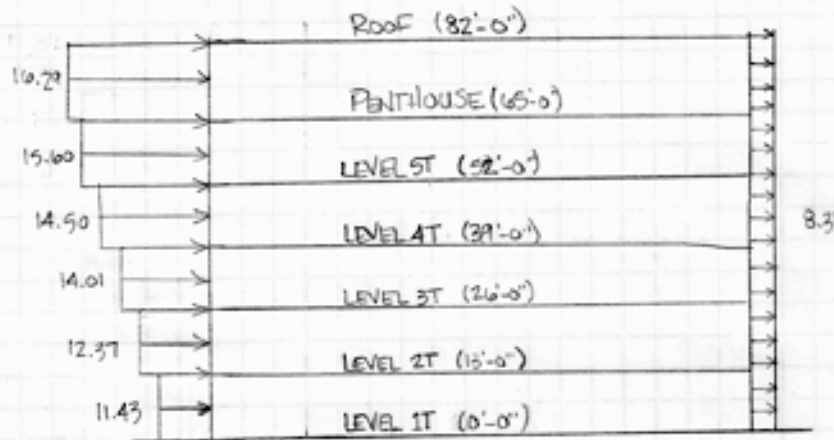 ROOF (82'-0")
16.29
PENTHOUSE (65'-0")
15.60
LEVEL 5T (52'-0")
14.50
8.3
LEVEL 4T (39'-0")
14.01
LEVEL 3T (26'-0")
12.37
LEVEL 2T (13'-0")
11.43
LEVEL 1T (0'-0")